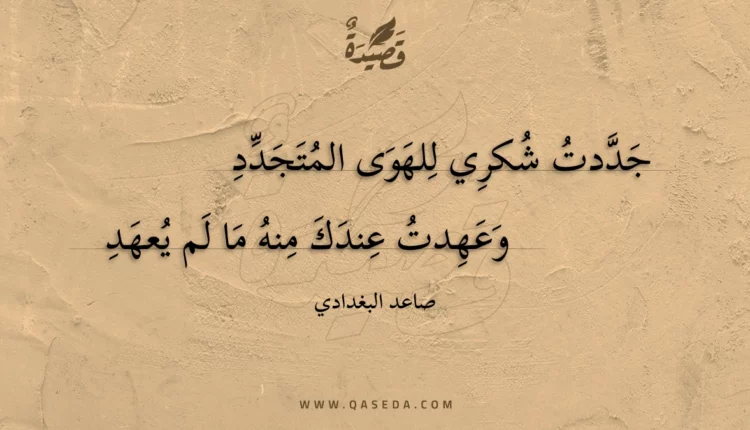 قَصِيدَةٌ
جَدَّدتُ شُكرِي لِلهَوَى المُتَجَدِّدِ
وَعَهِدتُ عِندَكَ مِنهُ مَا لَم يُعهَدِ
صاعد البغدادي
WWW.QASEDA.COM